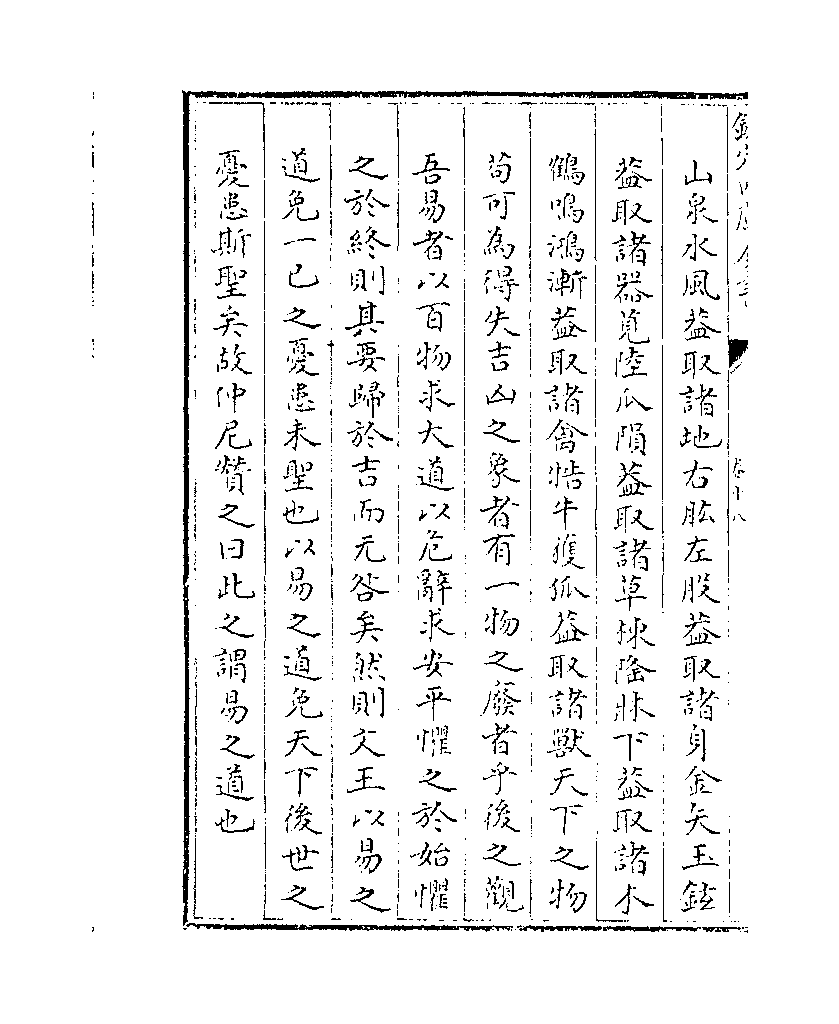 山泉水風葢取諸地右肱左股葢取諸身金矢玉鉉
葢取諸器莧陸瓜隕葢取諸草棟隆牀下葢取諸木
鶴鳴鴻漸葢取諸禽牿牛獲狐葢取諸獸天下之物
茍可為得失吉凶之象者有一物之廢者乎後之觀
吾易者以百物求大道以危辭求安平懼之於始懼
之於終則其要歸於吉而无咎矣然則文王以易之
道免一已之憂患未聖也以易之道免天下後世之
憂患斯聖矣故仲尼贊之曰此之謂易之道也
卷十八